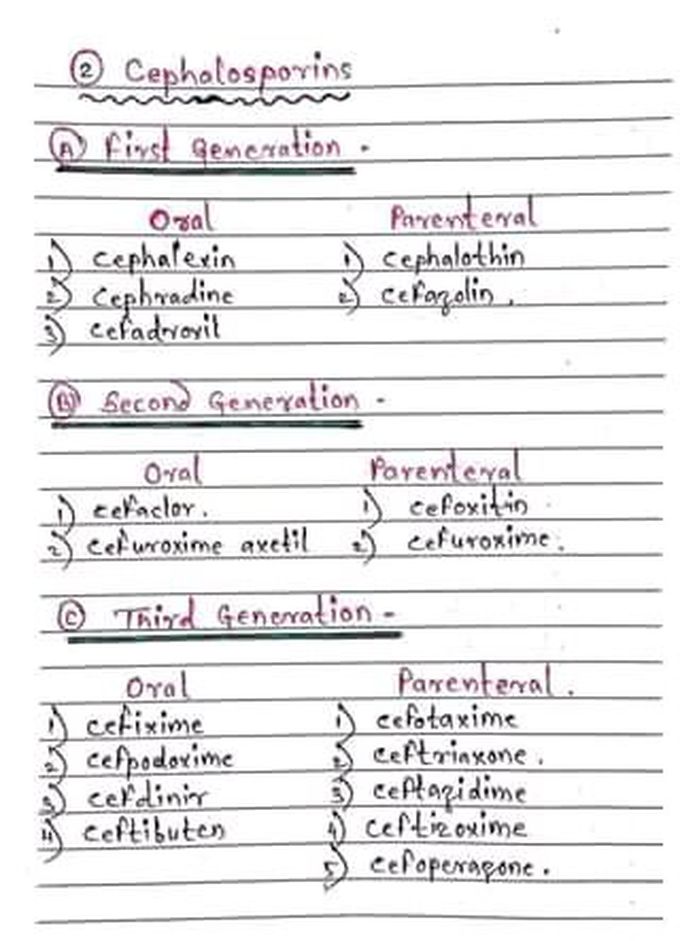 ② Cephalosporins
Ⓐ First Generation -
Oral Parenteral
1) cephalexin 1) cephalothin
2) cephradine 2) cefazolin .
3) cefadroxil
Ⓑ Second Generation -
Oral Parenteral
1) cefaclor. 1) cefoxitin
2) cefuroxime axetil 2) cefuroxime.
Ⓒ Third Generation -
Oral Parenteral .
1) cefixime 1) cefotaxime
2) cefpodoxime 2) ceftriaxone .
3) cefdinir 3) ceftazidime
4) ceftibuten 4) ceftizoxime
5) cefoperazone .